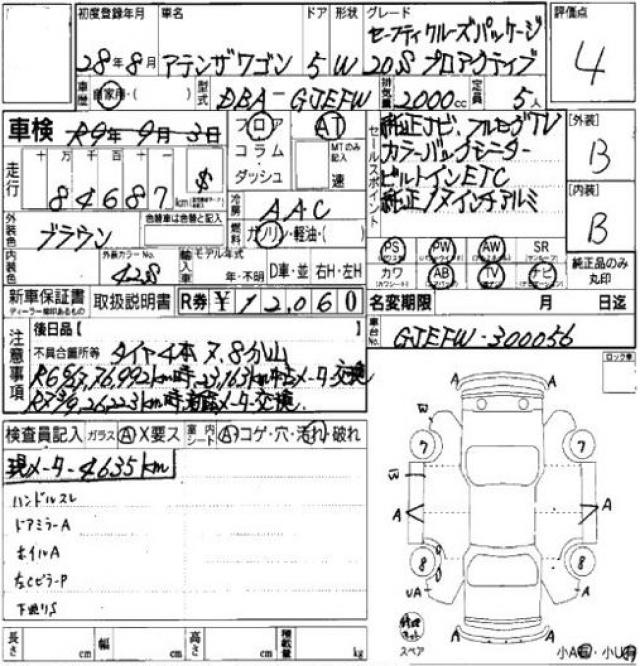 初度登録年月 車名 ドア 形状 グレード 評価点
28年8月 アテンザワゴン 5 W セーフティクルーズパッケージ
20S プロアクティブ
4
車歴 自家用・( ) 型式 DBA-GJEFW 排気量 2000cc 定員 5人
車検 R9年9月3日 フロア AT
コラム MTのみ記入
ダッシュ 速
セールスポイント 純正ナビ. フルセグTV
カラーバックモニター
ビルトインETC
純正17インチアルミ
[外装] B
[内装] B
走行 十 万 千 百 十 一
84687km $
冷房 AAC
燃料 ガソリン・軽油・( )
外装色 ブラウン 色替車は色替と記入
内装色 外装カラーNo. 42S
輸入車 モデル年式 年・不明 D車・並 右H・左H
PS PW AW SR
カワ AB TV ナビ
純正品のみ丸印
新車保証書 取扱説明書 R券 ¥12,060
ディーラー捺印があるもの
名変期限 月 日迄
車台No. GJEFW-300056
注意事項 後日品【
不具合箇所等 タイヤ4本 7.8分山
検査員記入 ガラス A X要ス 室内シート A コゲ・穴・汚れ・破れ
現メーター4635km
ハンドルスレ
ドアミラーA
ホイルA
左CピラーP
下廻りS
長さ cm 幅 cm 高さ cm 積載量 kg
ロック車
A A
W
7 7
W
A A
8 8
UA A
スペア
A A
小A 小U